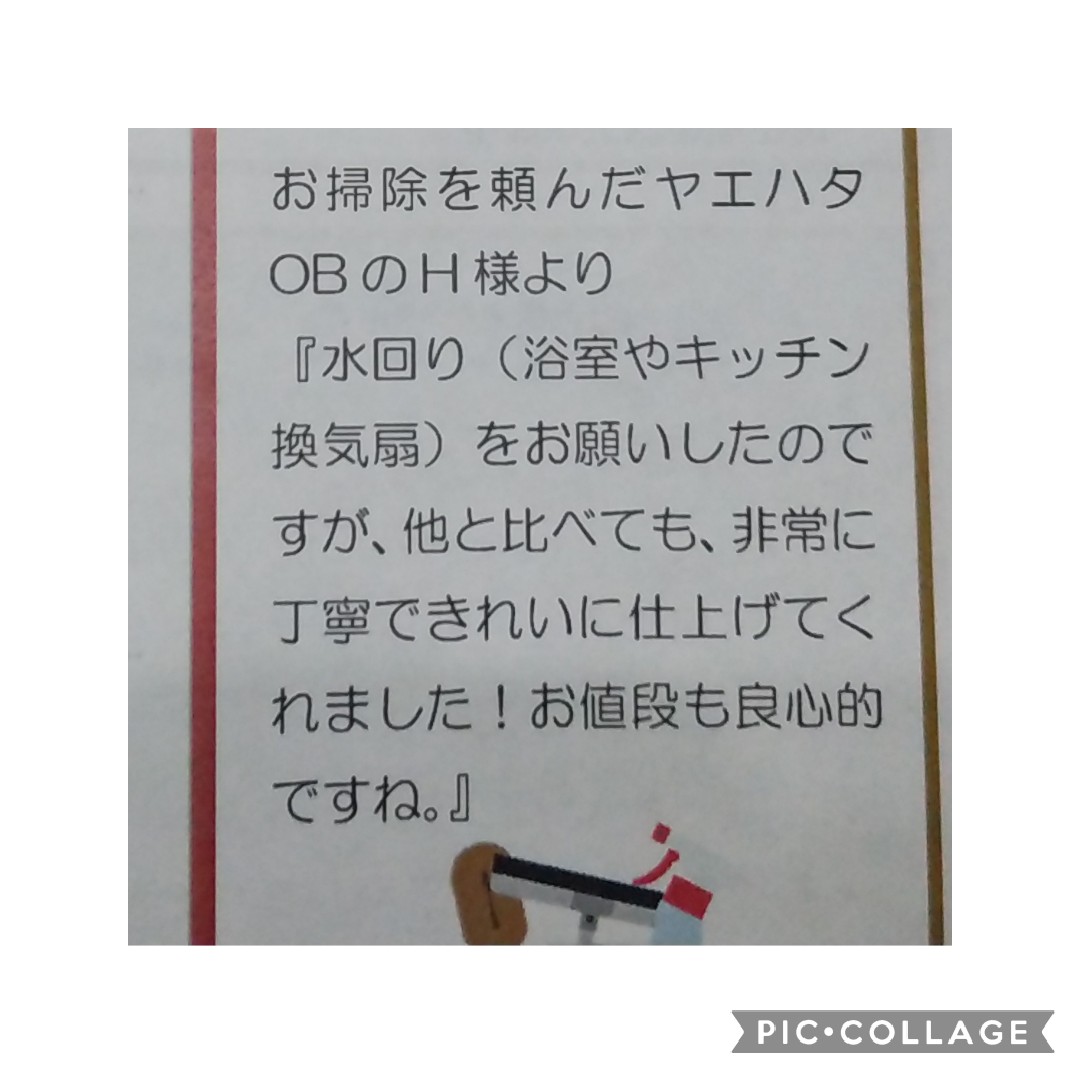 お掃除を頼んだヤエハタ
OBのH様より
『水回り（浴室やキッチン
換気扇）をお願いしたので
すが、他と比べても、非常に
丁寧できれいに仕上げてく
れました！お値段も良心的
ですね。』
PIC•COLLAGE